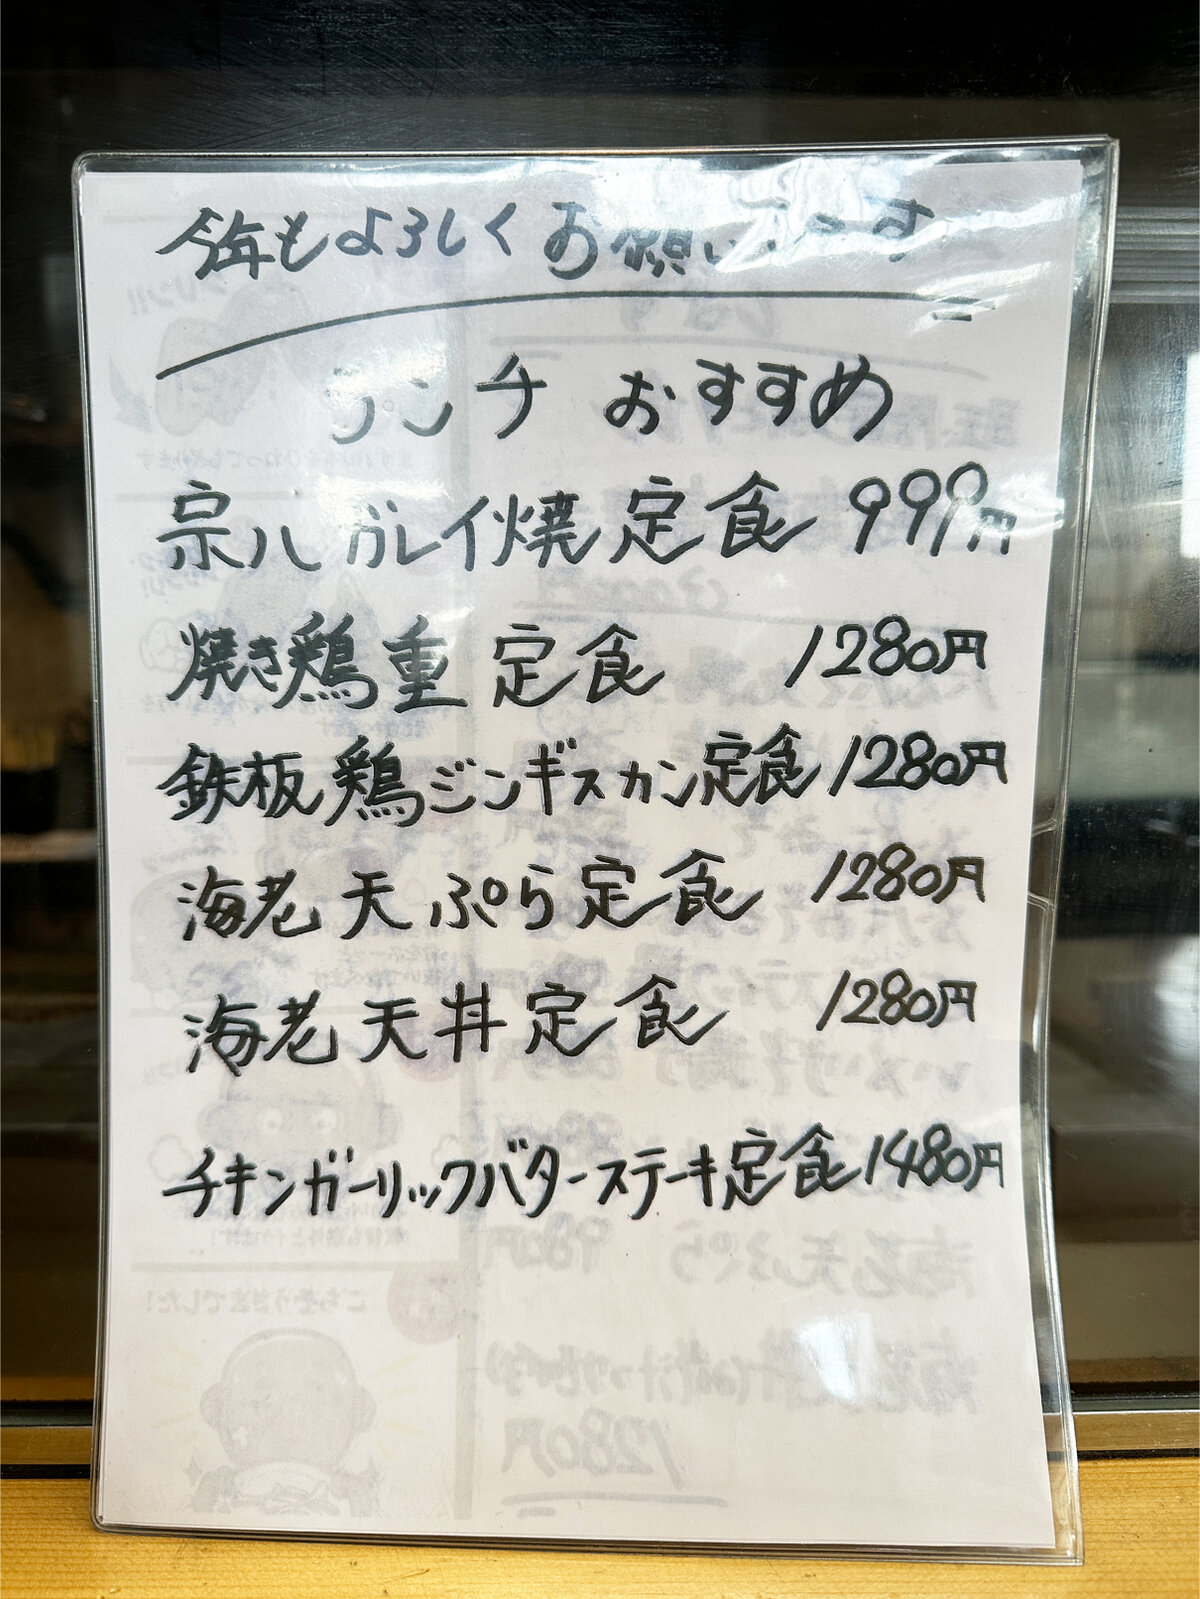 今年もよろしくお願いします
ランチ おすすめ
宗八ガレイ焼定食 999円
焼き鶏重定食 1280円
鉄板鶏ジンギスカン定食 1280円
海老天ぷら定食 1280円
海老天丼定食 1280円
チキンガーリックバターステーキ定食 1480円